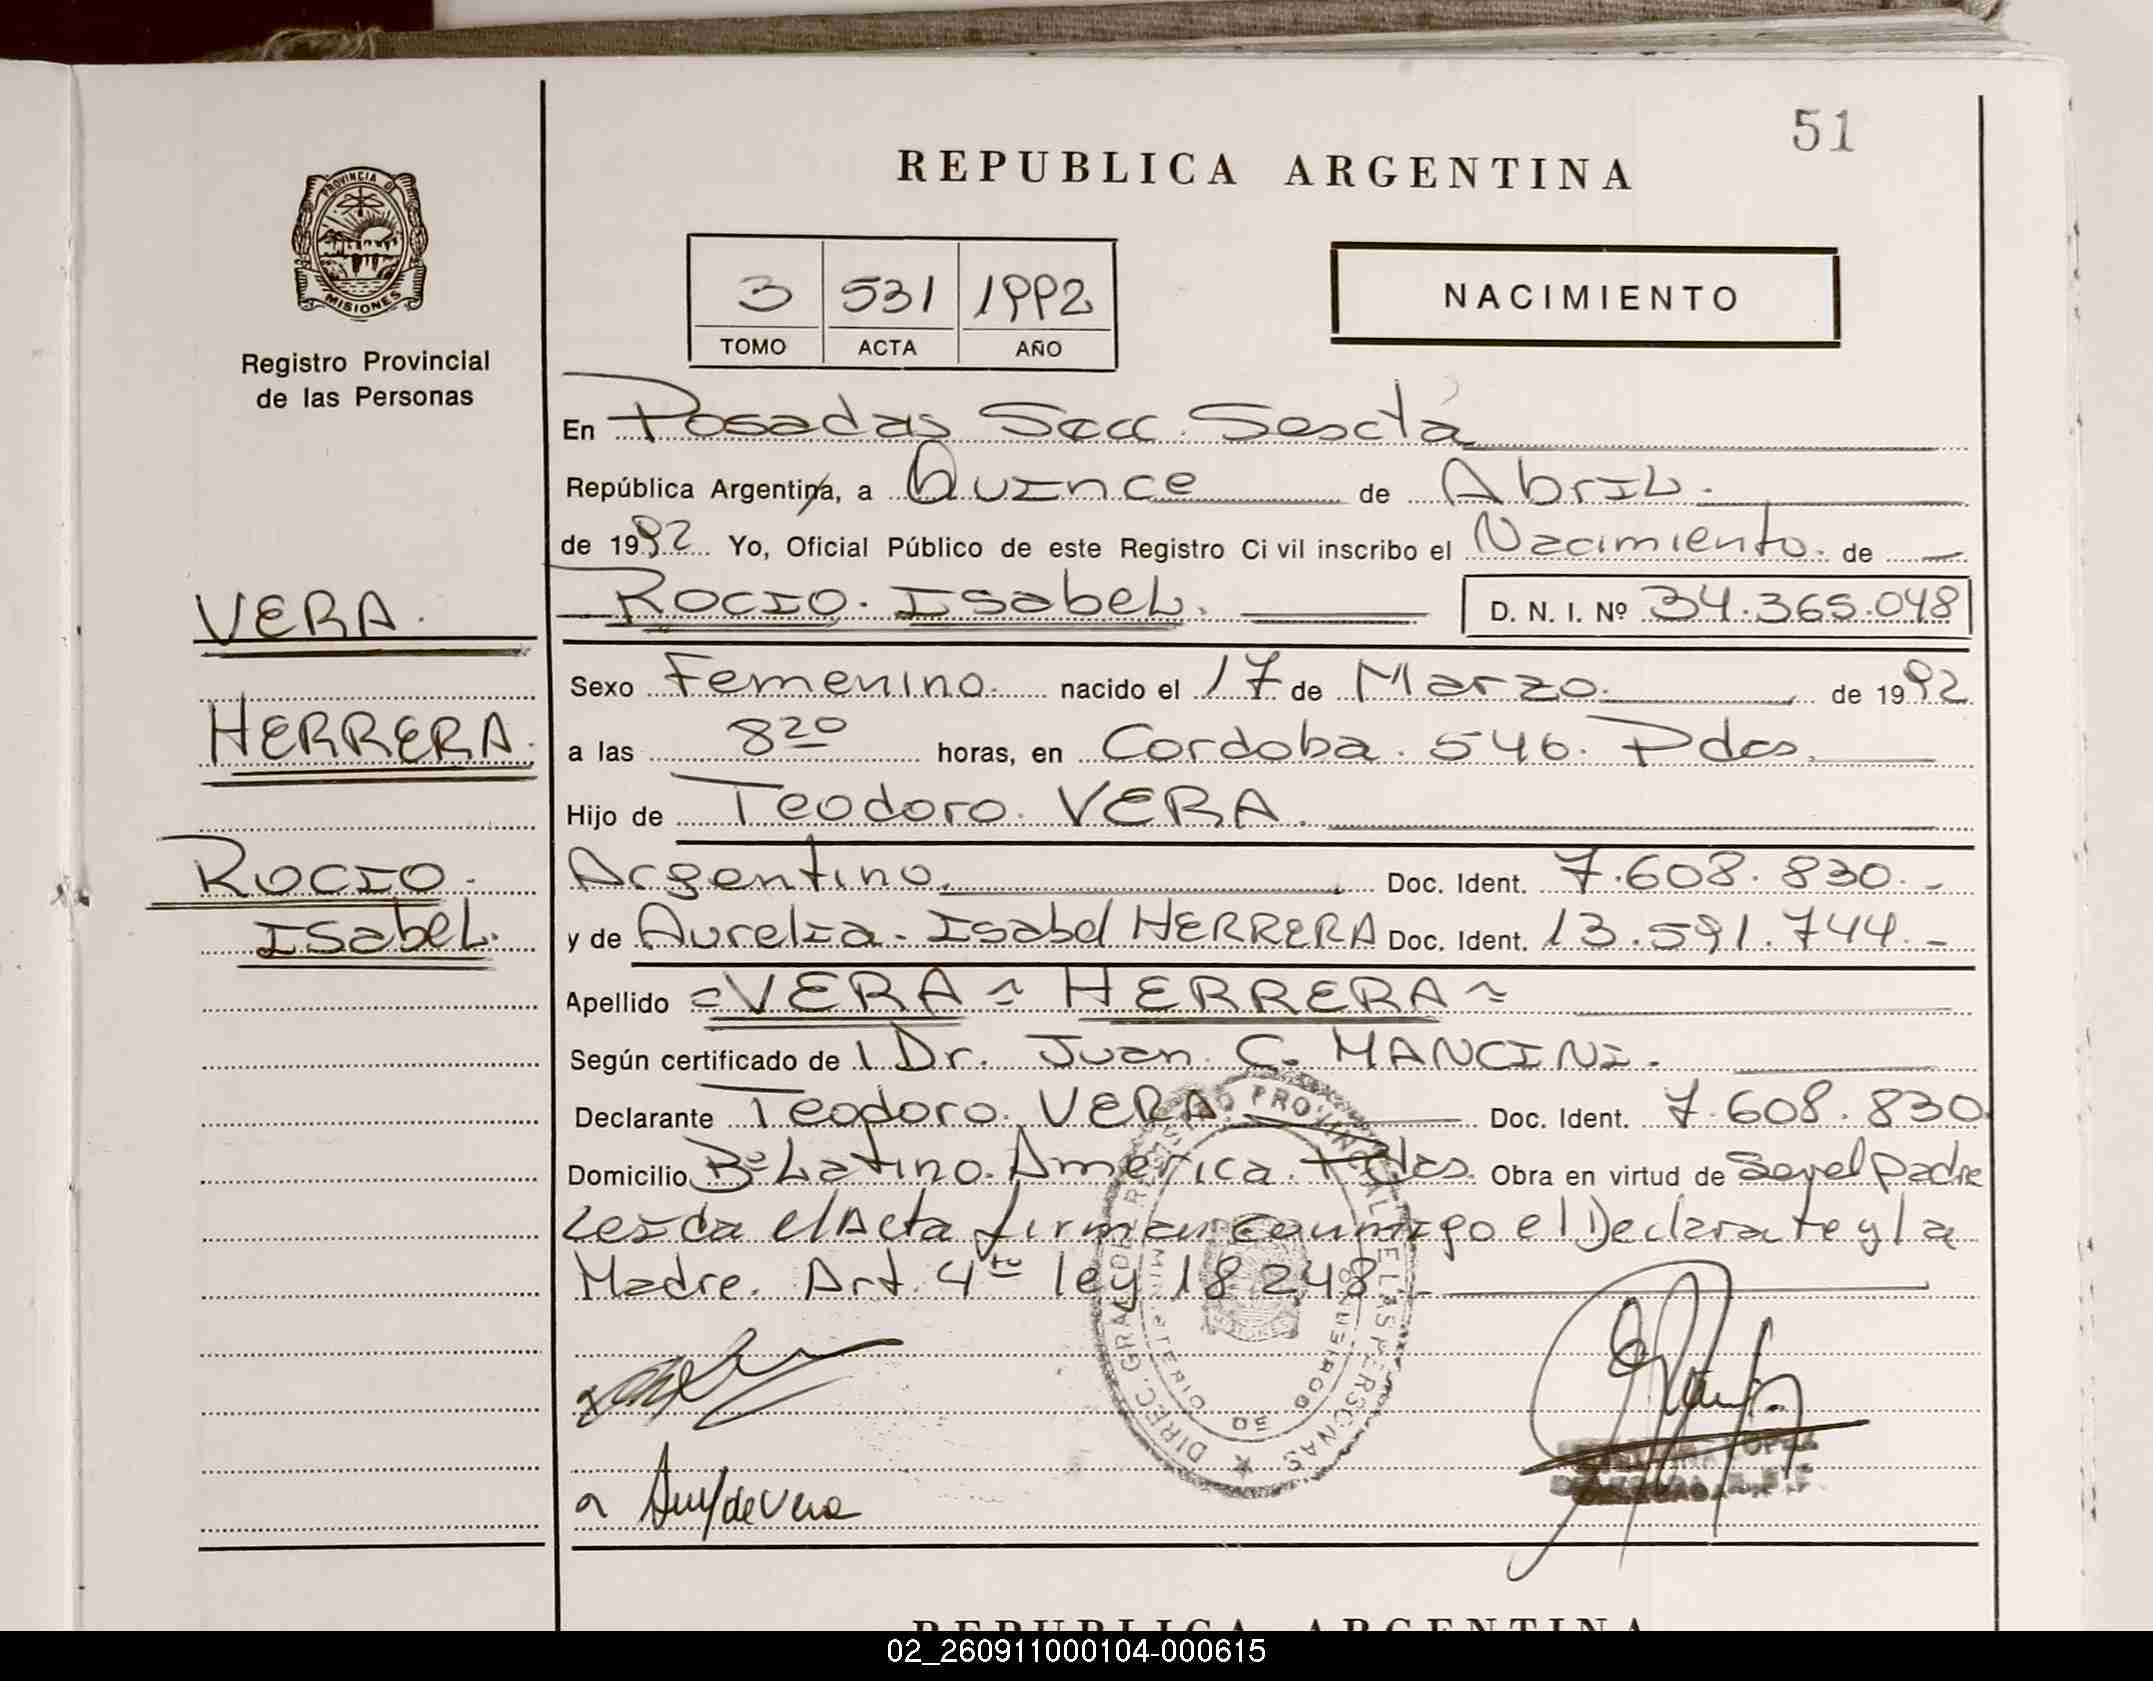 51
REPUBLICA ARGENTINA
PROVINCIA DE
MISIONES
Registro Provincial
de las Personas
3 531 1992
TOMO ACTA AÑO
NACIMIENTO
En Posadas Secc. Sescta
República Argentina, a Quince de Abril.
de 1992 Yo, Oficial Público de este Registro Ci vil inscribo el Nacimiento. de
Rocio. Isabel. D. N. I. Nº 34.365.048
VERA.
Sexo Femenino. nacido el 17 de Marzo. de 1992
HERRERA.
a las 8 20 horas, en Cordoba. 546. Pdas.
Hijo de Teodoro. VERA.
Rocio.
Argentino. Doc. Ident. 7.608.830.-
Isabel.
y de Aurelia. Isabel HERRERA Doc. Ident. 13.591.744.-
Apellido =VERA ~ HERRERA ~
Según certificado de l Dr. Juan. C. MANCINI.
Declarante Teodoro. VERA. Doc. Ident. 7.608.830
Domicilio Bº Latino. America. Pdas. Obra en virtud de Ser el padre
Leida el Acta firman conmigo el Declarate y la
Madre. Art. 4to ley 18248.-
DIREC. GRAL. DE REGISTRO PROVINCIAL DE LAS PERSONAS
MINISTERIO DE GOBIERNO
de Vera
REPUBLICA ARGENTINA
02_260911000104-000615